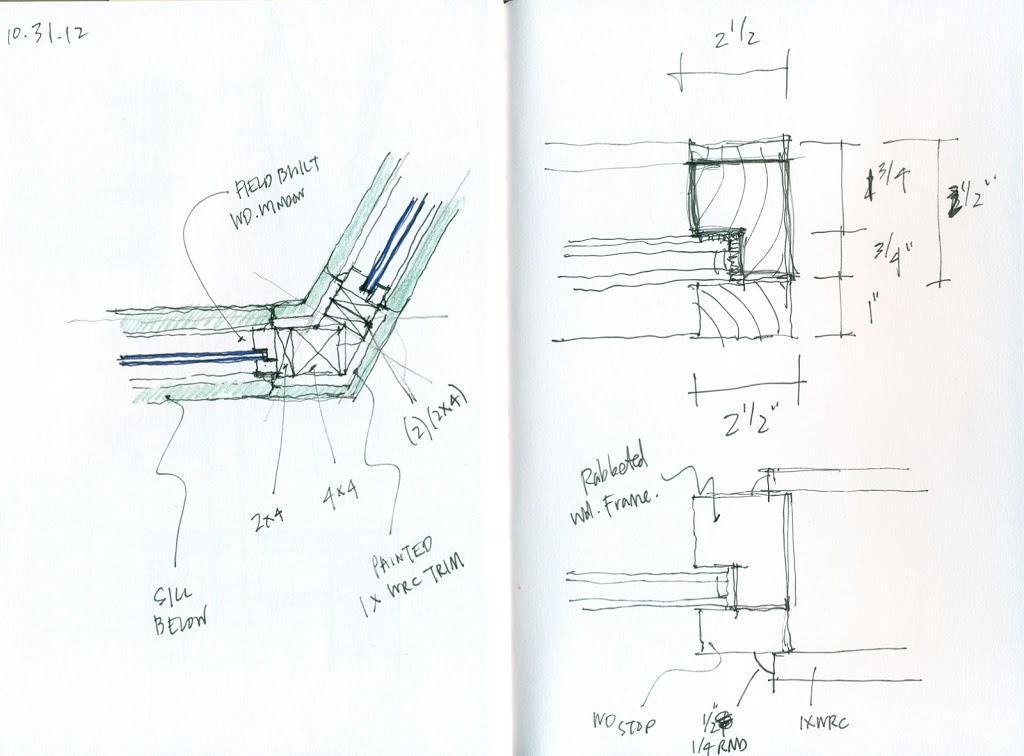 10.31.12
FIELD BUILT
WD. WINDOW
(2)(2x4)
4x4
2x4
PAINTED
1x WRC TRIM
SILL
BELOW
2 1/2
3/4
2 1/2"
3/4"
1"
2 1/2"
Rabbeted
Wd. Frame.
WD STOP
1/2"
1/4 RND
1x WRC